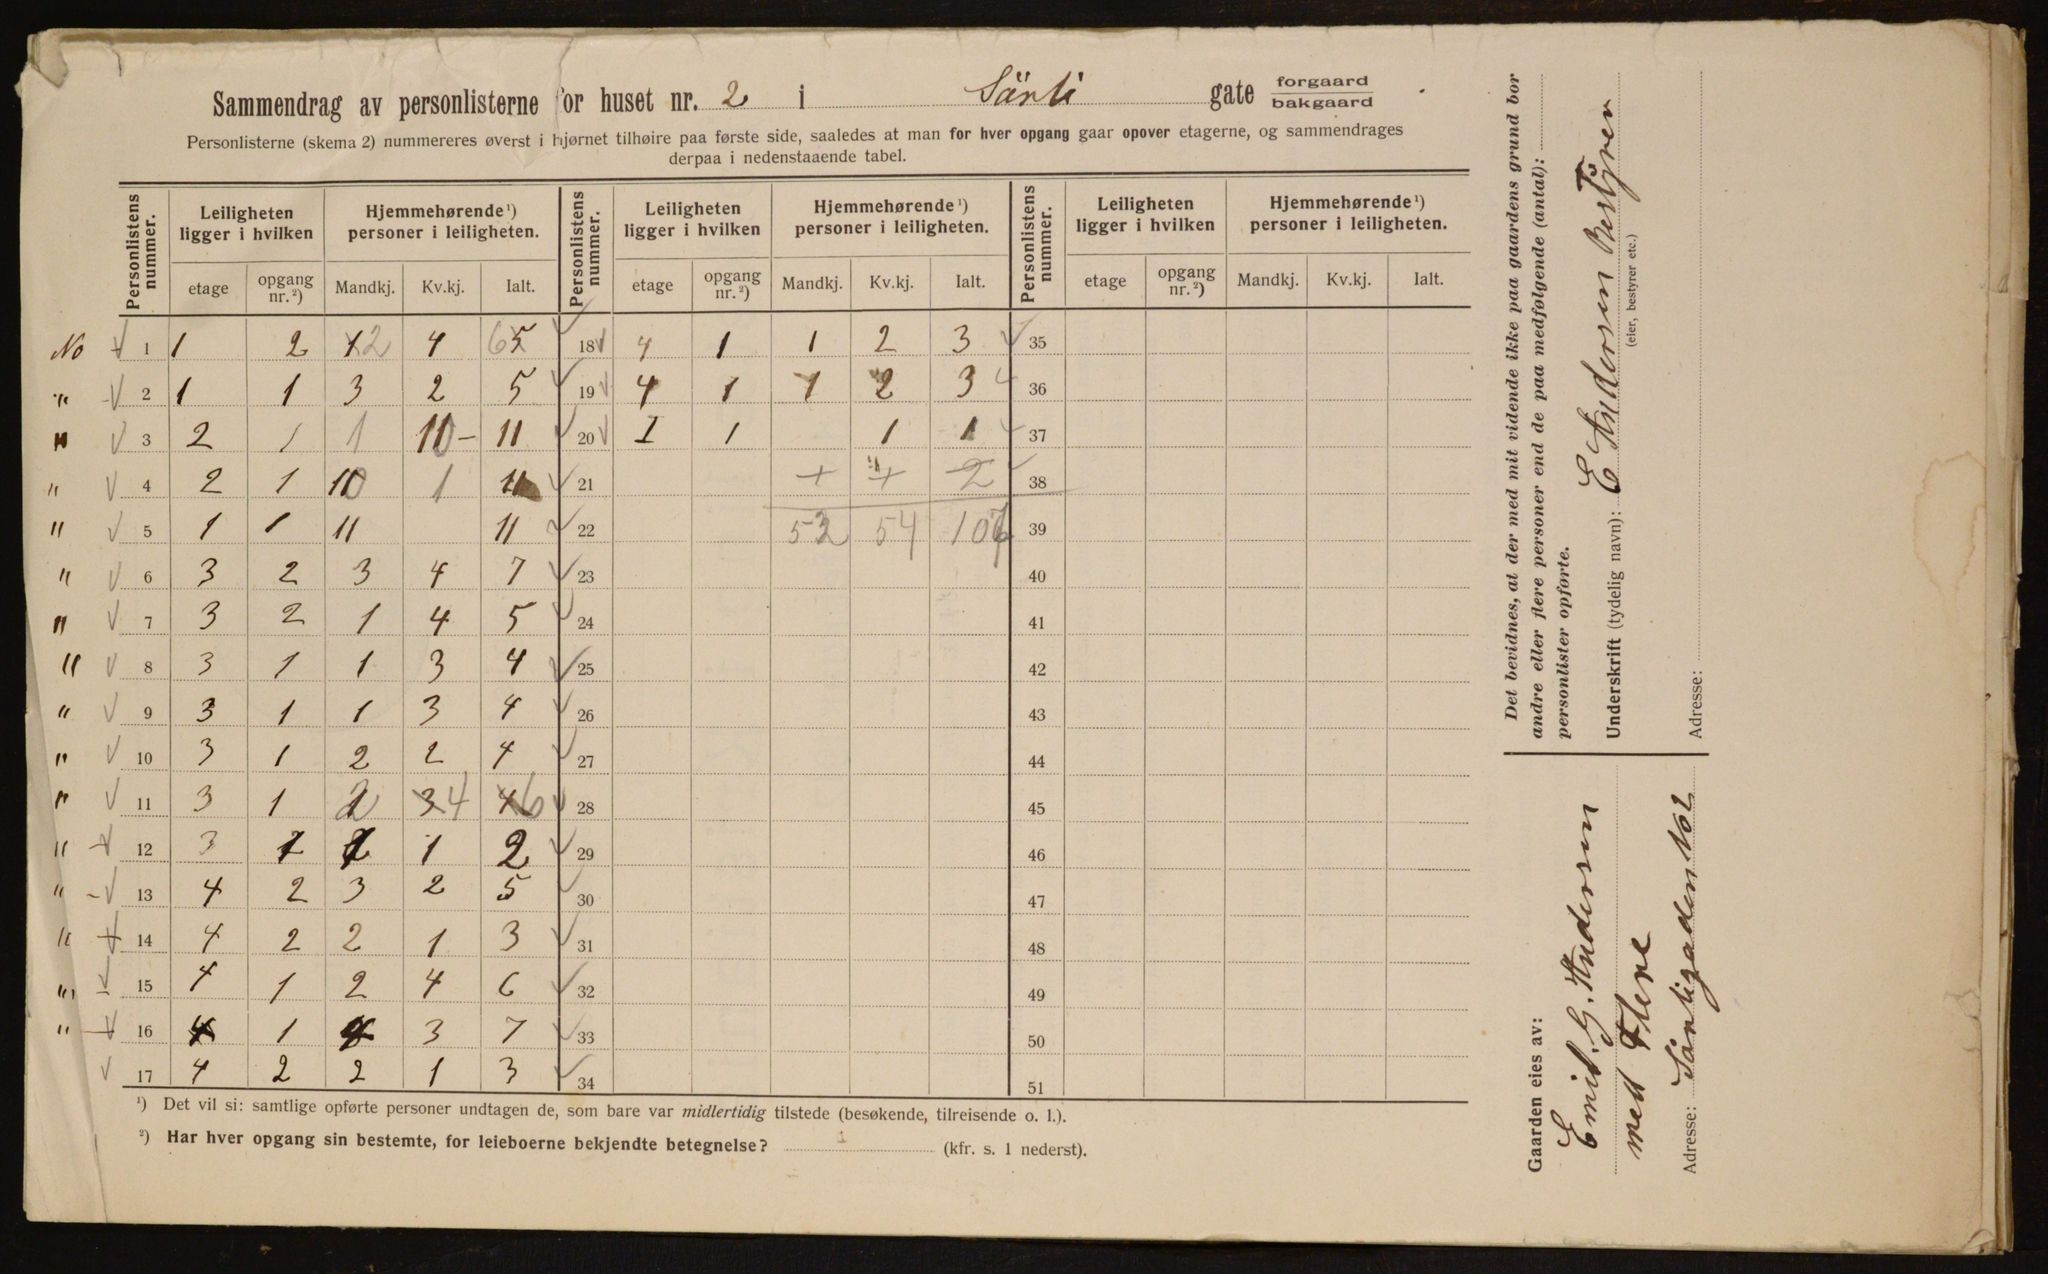 Sammendrag av personlisterne for huset nr. 2 i Sårli gate forgaard bakgaard
Personlisterne (skema 2) nummereres øverst i hjørnet tilhøire paa første side, saaledes at man for hver opgang gaar opover etagerne, og sammendrages
derpaa i nedenstaaende tabel.
Personlistens nummer. Leiligheten ligger i hvilken Hjemmehørende ¹) personer i leiligheten. Personlistens nummer. Leiligheten ligger i hvilken Hjemmehørende ¹) personer i leiligheten. Personlistens nummer. Leiligheten ligger i hvilken Hjemmehørende ¹) personer i leiligheten.
etage opgang nr. ²) Mandkj. Kv.kj. Ialt. etage opgang nr. ²) Mandkj. Kv.kj. Ialt. etage opgang nr. ²) Mandkj. Kv.kj. Ialt.
No 1 1 2 1 2 4 6 5 18 4 1 1 2 3 35
" 2 1 1 3 2 5 19 4 1 1 2 3 36
" 3 2 1 1 10 – 11 20 I 1 1 1 37
" 4 2 1 10 1 11 21 + + 2 38
" 5 1 1 11 11 22 53 54 107 39
" 6 3 2 3 4 7 23 40
" 7 3 2 1 4 5 24 41
" 8 3 1 1 3 4 25 42
" 9 3 1 1 3 4 26 43
" 10 3 1 2 2 4 27 44
" 11 3 1 2 3 4 4 6 28 45
" 12 3 1 1 1 2 29 46
" 13 4 2 3 2 5 30 47
" 14 4 2 2 1 3 31 48
" 15 4 1 2 4 6 32 49
" 16 4 1 4 3 7 33 50
17 4 2 2 1 3 34 51
¹) Det vil si: samtlige opførte personer undtagen de, som bare var midlertidig tilstede (besøkende, tilreisende o. l.).
²) Har hver opgang sin bestemte, for leieboerne bekjendte betegnelse? (kfr. s. 1 nederst).
Det bevidnes, at der med mit vidende ikke paa gaardens grund bor
andre eller flere personer end de paa medfølgende (antal):
personlister opførte.
Underskrift (tydelig navn): E Andersen Bestyrer
(eier, bestyrer etc.)
Adresse:
Gaarden eies av:
Emil. G. Andersen
med Flere
Adresse: Sårligaden No 2